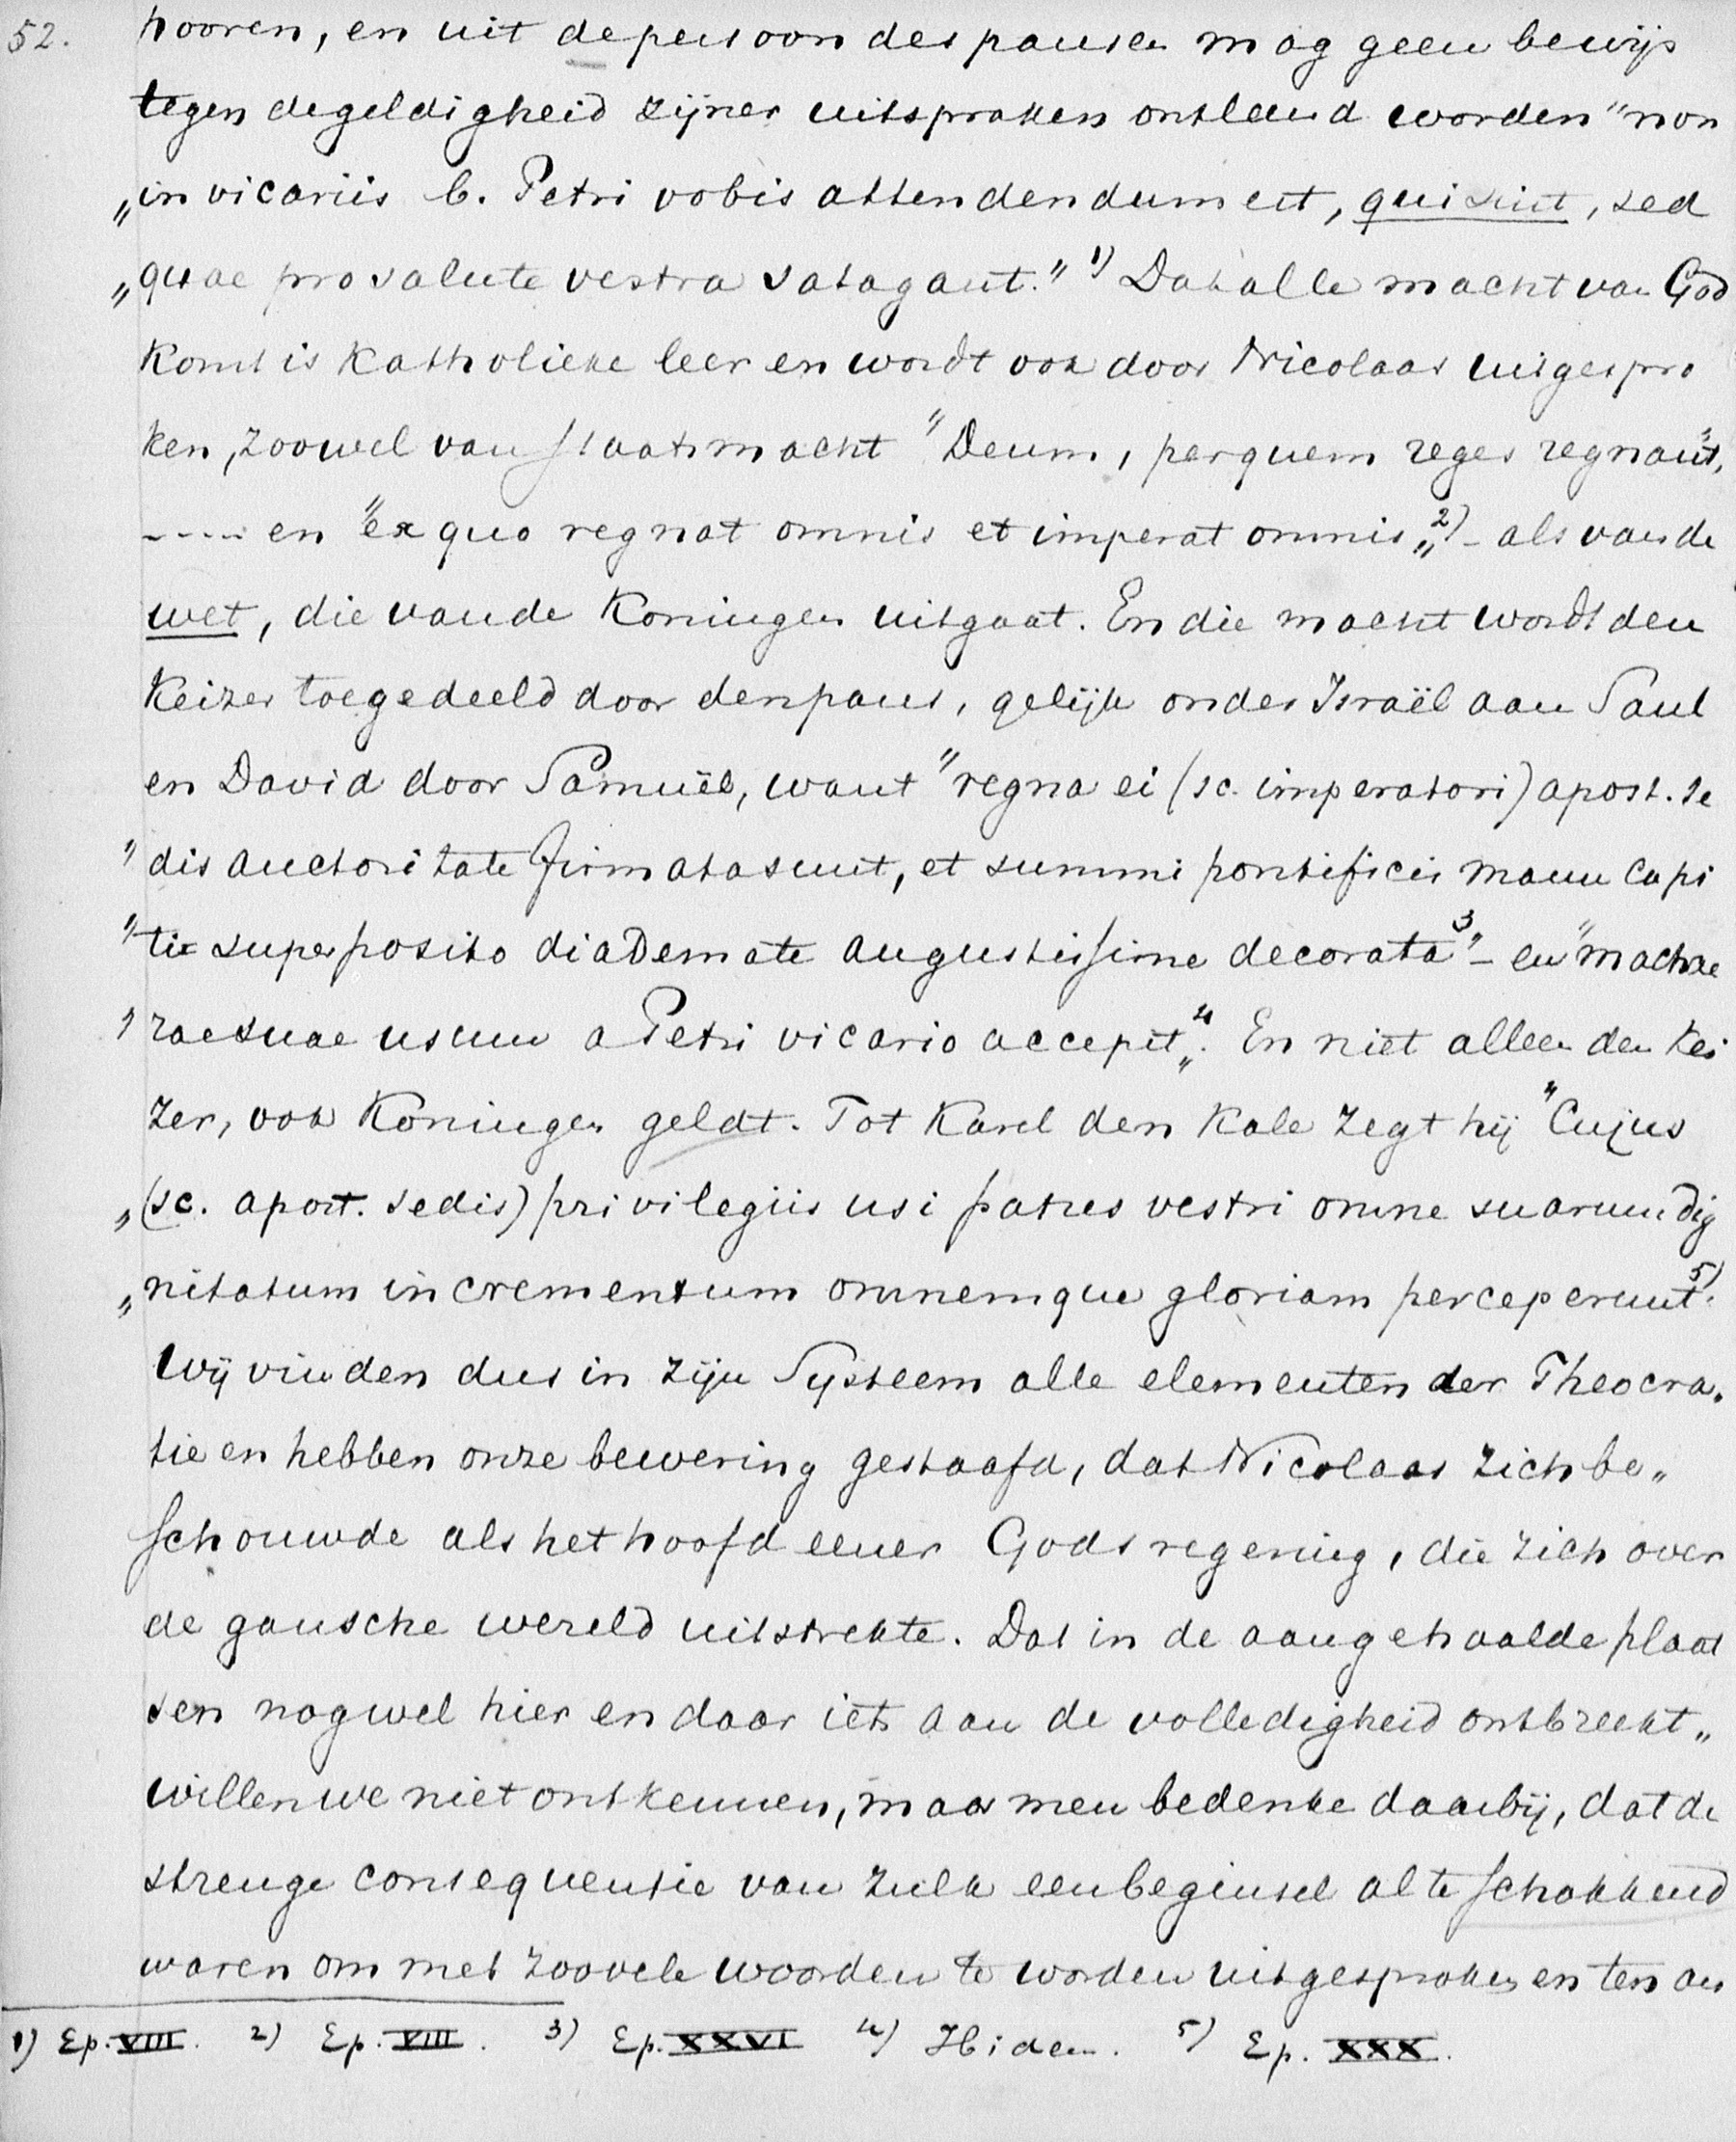 52. hooren, en uit de persoon des pausen mag geen bewijs
tegen de geldigheid zijner uitspraken ontleend worden "non
„in vicariis b. Petri vobis attendendum est, qui sint, sed
„quae pro salute vestra satagant." 1) Dat alle macht van God
komt is Katholieke leer en wordt ook door Nicolaas uitgespro
ken, zoowel van staatsmacht "Deum, per quem reges regnant",
----- en "ex quo regnat omnis et imperat omnis„ 2) - als van de
wet, die van de Koningen uitgaat. En die macht wordt den
Keizer toegedeeld door den paus, gelijk onder Israël aan Saul
en David door Samuël, want "regna ei (sc. imperatori) apost. se
"dis auctoritate firmata sunt, et summi pontificis manu capi
"tis superposito diademate augustissime decorata" 3 - en "machae
"rae suae usum a Petri vicario accepit„ 4. En niet alleen den Kei
zer, ook Koningen geldt. Tot Karel den Kale zegt hij "Cujus
„(sc. apost. sedis) privilegiis usi patres vestri omne suarum dig
„nitatum incrementum omnemque gloriam perceperunt. 5)
Wij vinden dus in zijn Systeem alle elementen der Theocra„
tie en hebben onze bewering gestaafd, dat Nicolaas zich be„
schouwde als het hoofd eener Godsregering, die zich over
de gansche wereld uitstrekte. Dat in de aangehaalde plaat
sen nog wel hier en daar iets aan de volledigheid ontbreekt„
willen we niet ontkennen, maar men bedenke daarbij, dat de
strenge consequentie van zulk een beginsel al te schokkend
waren om met zoovele woorden te worden uitgesproken en ten an
1) Ep. VIII. 2) Ep. VIII. 3) Ep. XXVI 4) Ibidem. 5) Ep. XXX.